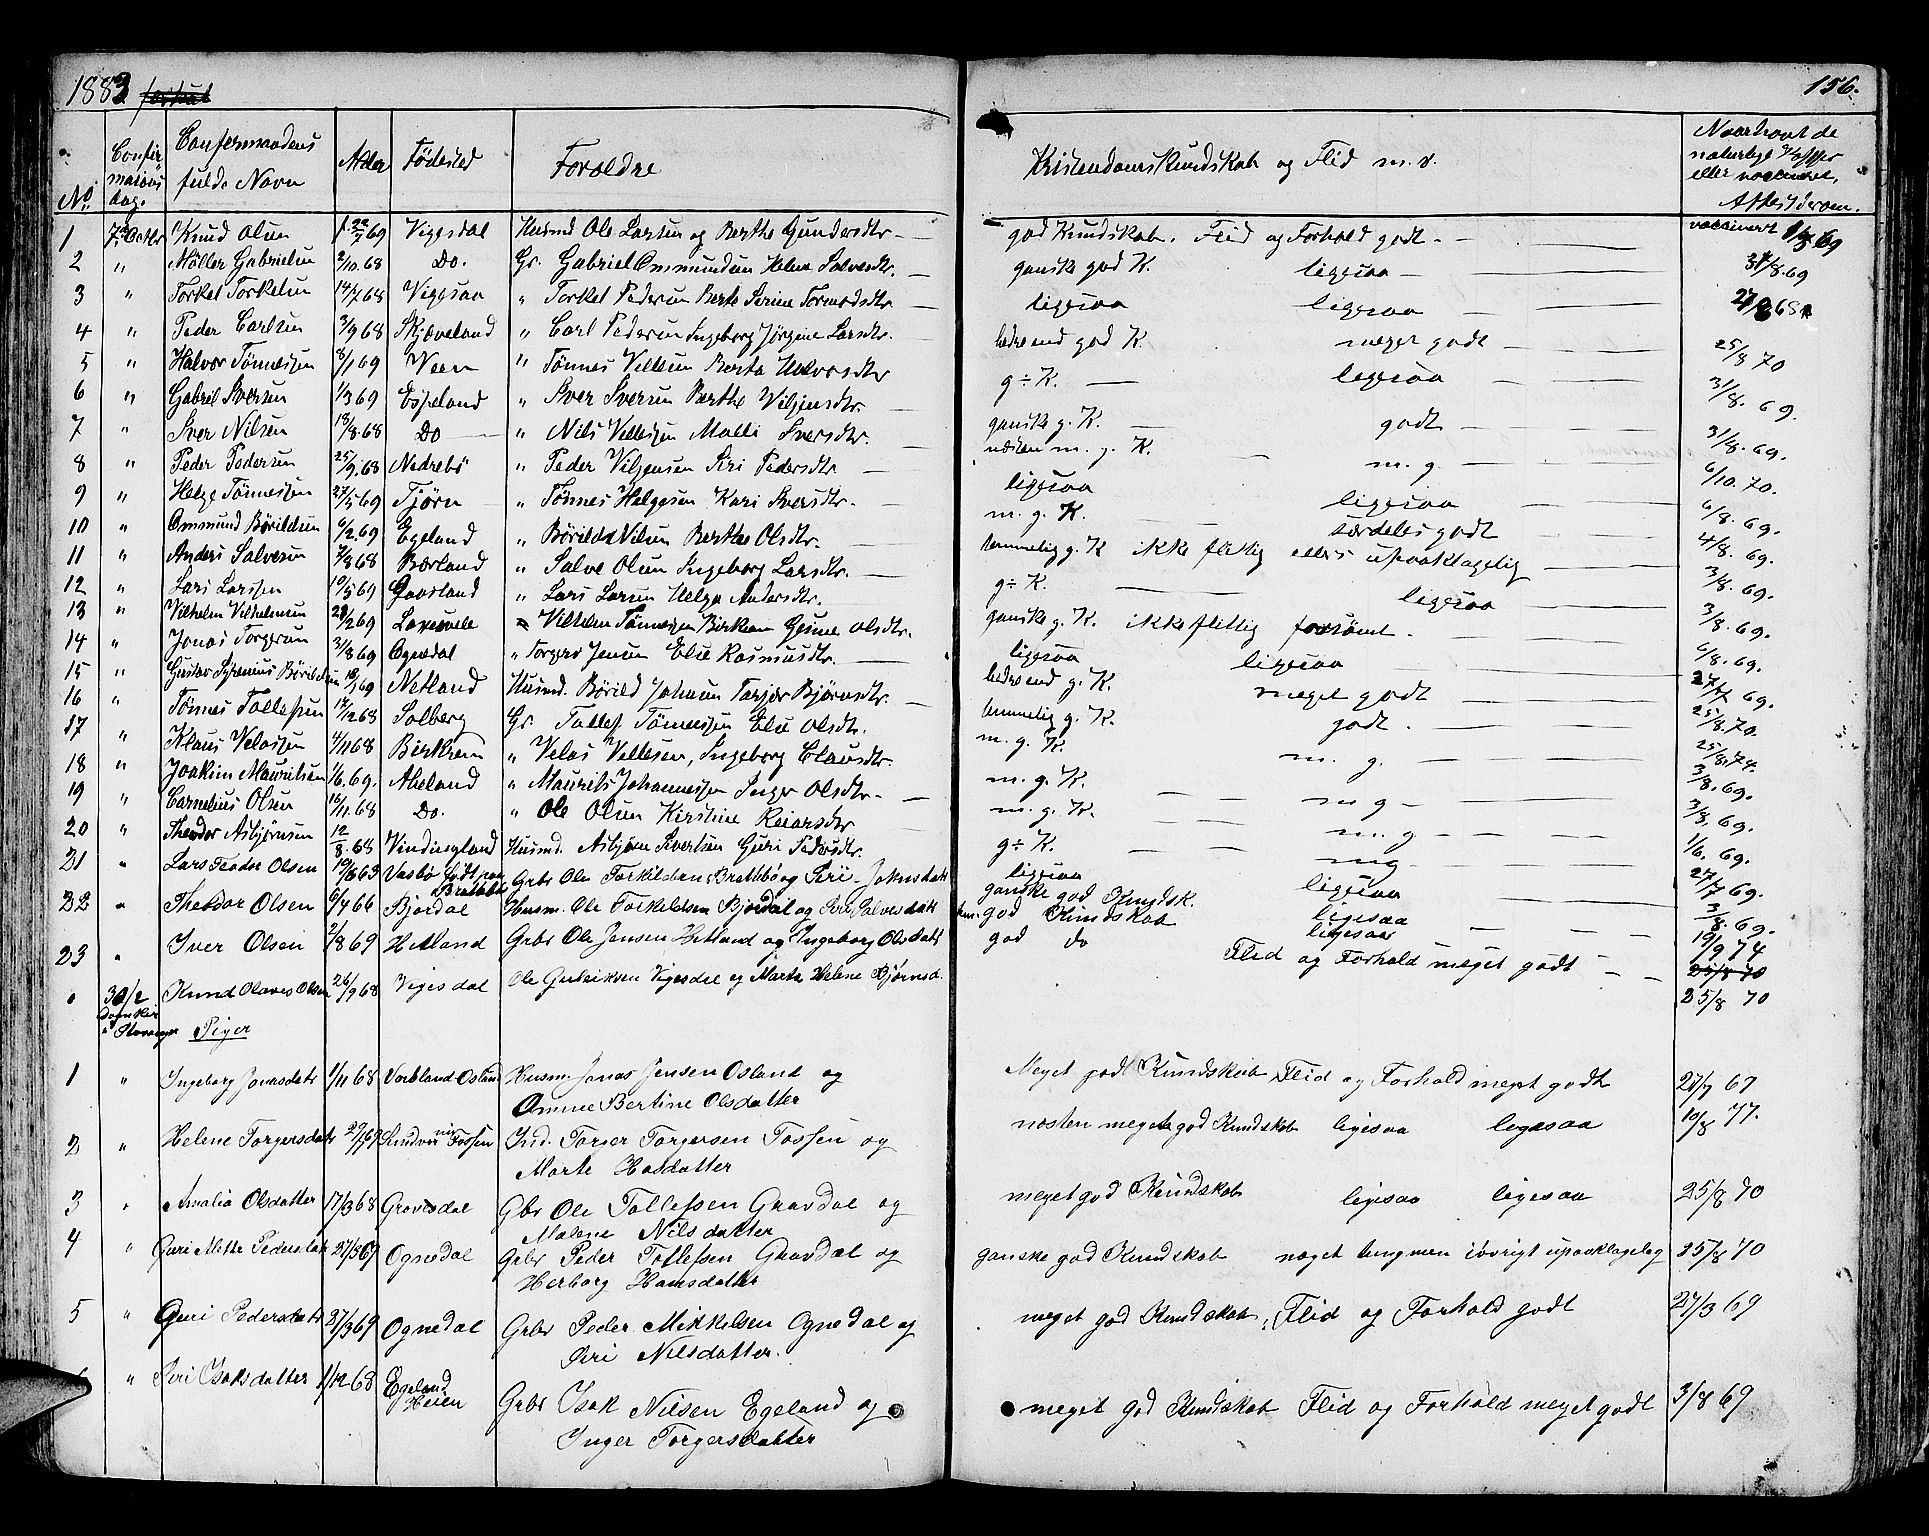 1883 156.
No. Confirmations dag. Confermandens fulde Navn Alder Fødested Forældre Kristendomskundskab og Flid m. v. Naar havt de naturlige Kopper eller vaccineret, Attest derom.
1 7de Octbr Knud Olsen 22/7 69 Vigesdal Husmd Ole Larsen og Berthe Gundersdtr — god Kundskab. Flid og Forhold godt — vaccineret 69
2 " Møller Gabrielsen 2/10.68 Do. Gr. Gabriel Ommundsen Helene Salvesdtr. — ganske god K. ligesaa — 31/8.69
3 " Torkel Torkelsen 14/7 68 Vigesaa " Torkel Pedersen Berte Serine Tormodsdtr ligesaa ligesaa — 68
4 " Peder Carlsen 3/9 68 Skjæveland " Carl Pedersen Ingeborg Jørgine Larsdtr. bedre end god K. meget godt — 25/8 70
5 " Halvor Tönnessen 8/1 69 Veen " Tönnes Vellesen Berta Halvorsdtr g÷K. — ligesaa — 31/8. 69.
6 " Gabriel Iversen 1/3 69 Espeland " Iver Iversen Berthe Viljensdtr. — ganske g. K. — godt — 31/8. 69.
7 " Iver Nilsen 13/8.68 Do — " Nils Vellessen Malli Iversdtr. — næsten m. g. K. — m. g. — 6/10. 70.
8 " Peder Pedersen 25/9.68 Nedrebö " Peder Viljensen Siri Pedersdtr — ligesaa ligesaa — 6/8. 69.
9 " Helge Tönnessen 27/5 69 Tjörn " Tönnes Helgesen Kari Iversdtr. — m. g. K. — særdeles godt — 4/8. 69.
10 " Ommund Börildsen 6/2 69 Egeland " Börild Nilsen Berthe Olsdtr. — temmelig g. K ikke flittig ellers upaaklagelig — 3/8. 69.
11 " Anders Salvesen 7/8 68 Bærland " Salve Olsen Ingeborg Larsdtr. — g÷K. — ligesaa — 3/8. 69.
12 " Lars Larssen 10/5 69 Gaasland " Lars Larsen Helga Andersdtr. — ganske g. K. ikke flittig forsömt. — 6/8. 69.
13 " Vilhelm Vilhelmsen 28/2 69 Laxesvele " Vilhelm Tönnessen Birkrem Gesine Olsdtr. ligesaa ligesaa — 27/7 69.
14 " Jonas Torgersen 31/8 69 Ognedal " Torgers Jensen Elie Rasmusdtr. — bedre end g. K. meget godt — 25/8.70.
15 " Gustav Syrenius Börildsen 16/1 69 Netland Husmd. Börild Johnsen Tarjer Bjørnsdtr. — temmelig g. K. godt. — 25/8.74.
16 " Tönnes Tollefsen 12/12 68 Solberg Gr. Tollef Tönnessen Elie Olsdt. m. g. K. m. g. — 3/8. 69.
17 " Klaus Velassen 4/11 68 Birkrem " Velas Vellesen, Ingeborg Clausdtr. m. g. K. — m g — 3/8. 69.
18 " Joakim Mauritsen 1/6. 69. Aseland " Maurits Johannessen Inger Olsdtr. — m. g. K. — m. g — 1/6. 69.
19 " Cornelius Olsen 16/11.68 Do. " Ole Olsen Kirstine Reiersdtr g÷K. — mg — 27/7 69.
20 " Theodor Asbjørnsen 12/8 68 Vindingland Husmd. Asbjørn Sivertsen Guri Pedersdtr. ligesaa ligesaa 3/8. 69.
21 " Lars Teodor Olsen 19/8 69 Vasbø født paa Bratebø Grbr Ole Torkildsen Bratebø og Siri Johnsdatt ganske god Kundsk. ligesaa
22 " Theodor Olsen 6/4 66 Bjordal Husm. Ole Torkeldsen Bjordal og Siri Salvesdatt tem. god Kundskab ligesaa — 19/9 74
23 " Iver Olsen 2/8 69 Hetland Grbr Ole Jensen Hetland og Ingeborg Olsdatt god do Flid og Forhold meget godt — 25/8 70
30/2 Domkir i Stavanger Knud Olaves Olsen 26/9 68 Vigesdal Ole Gudriksen Vigesdal og Marta Helene Bjørnsd. 25/8 70
Piger
1 " Ingeborg Jonasdatr 1/11 68 Vorbland Osland Husm. Jonas Jensen Osland og Meget god Kundskab Flid og Forhold meget godt 27/7 67
Omme Bertine Olsdatter
2 " Helene Torgersdatr 29/7 67 Sandvig Fossen Ind. Torger Torgersen Fossen og næsten meget god Kundskab ligesaa ligesaa 10/8 77.
Marte Hasdatter
3 " Amalia Olsdatter 17/3 68 Gravdal Gbr Ole Tollefsen Gravdal og meget god Kundskab ligesaa ligesaa 25/8 70
Malene Nilsdatter
4 " Guri Mette Pedersdatr 27/3 67 Ognedal Grbr Peder Tollefsen Gravdal og ganske god Kundskab noget tung men iøvrigt upaaklagelig 25/8 70
Herborg Hansdatter
5 " Guri Pedersdatr 27/3 69 Ognedal Grbr Peder Mikkelsen Ognedal og meget god Kundskab, Flid og Forhold godt 27/3 69
Siri Nilsdatter.
" Siri Isaksdatter 1/12 68 Egeland Heien Grbr Isak Nilsen Egeland og meget god Kundskab Flid og Forhold meget godt 3/8 69
Inger Torgersdatter